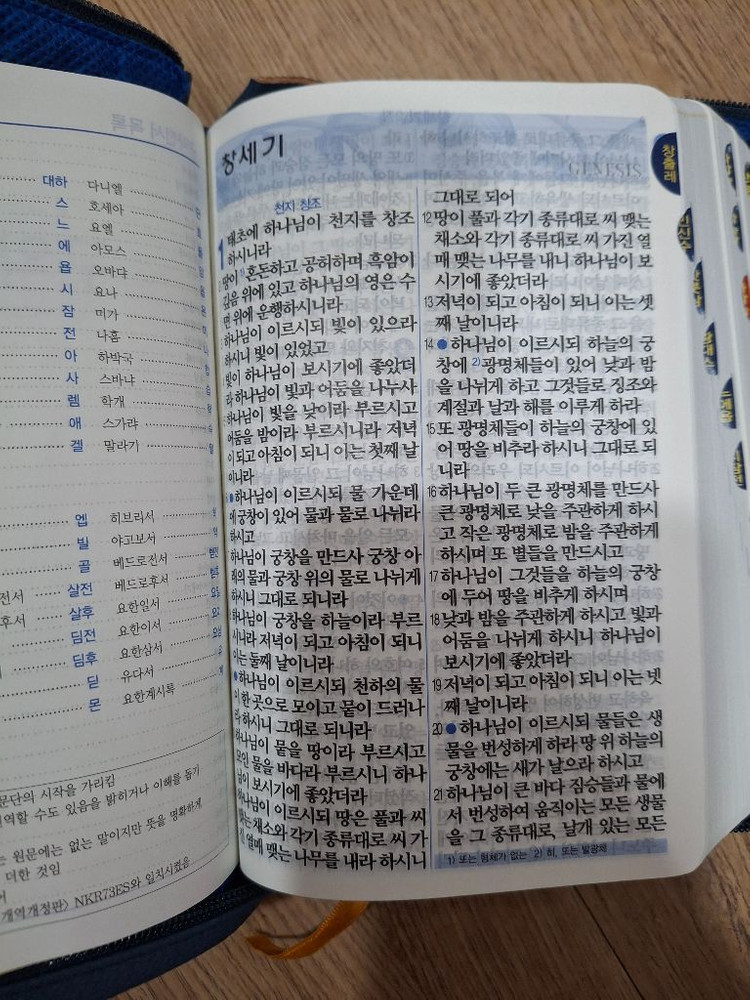 대하 다니엘
스 호세아
느 요엘
에 아모스
욥 오바댜
시 요나
잠 미가
전 나훔
아 하박국
사 스바냐
렘 학개
애 스가랴
겔 말라기
엡 히브리서
빌 야고보서
골 베드로전서
전서 살전 베드로후서
후서 살후 요한일서
딤전 요한이서
딤후 요한삼서
딛 유다서
몬 요한계시록
문단의 시작을 가리킴
역할 수도 있음을 밝히거나 이해를 돕기
는 원문에는 없는 말이지만 뜻을 명확하게
더한 것임
개역개정판〉 NKR73ES와 일치시켰음
창세기
천지 창조
1 태초에 하나님이 천지를 창조
하시니라
땅이 혼돈하고 공허하며 흑암이
깊음 위에 있고 하나님의 영은 수
면 위에 운행하시니라
하나님이 이르시되 빛이 있으라
하시니 빛이 있었고
빛이 하나님이 보시기에 좋았더
라 하나님이 빛과 어둠을 나누사
하나님이 빛을 낮이라 부르시고
어둠을 밤이라 부르시니라 저녁
이 되고 아침이 되니 이는 첫째 날
이니라
●하나님이 이르시되 물 가운데
에 궁창이 있어 물과 물로 나뉘라
하시고
하나님이 궁창을 만드사 궁창 아
래의 물과 궁창 위의 물로 나뉘게
하시니 그대로 되니라
하나님이 궁창을 하늘이라 부르
시니라 저녁이 되고 아침이 되니
이는 둘째 날이니라
●하나님이 이르시되 천하의 물
이 한 곳으로 모이고 뭍이 드러나
라 하시니 그대로 되니라
하나님이 뭍을 땅이라 부르시고
모인 물을 바다라 부르시니 하나
님이 보시기에 좋았더라
하나님이 이르시되 땅은 풀과 씨
맺는 채소와 각기 종류대로 씨 가
진 열매 맺는 나무를 내라 하시니
그대로 되어
12 땅이 풀과 각기 종류대로 씨 맺는
채소와 각기 종류대로 씨 가진 열
매 맺는 나무를 내니 하나님이 보
시기에 좋았더라
13 저녁이 되고 아침이 되니 이는 셋
째 날이니라
14 ●하나님이 이르시되 하늘의 궁
창에 2)광명체들이 있어 낮과 밤
을 나뉘게 하고 그것들로 징조와
계절과 날과 해를 이루게 하라
15 또 광명체들이 하늘의 궁창에 있
어 땅을 비추라 하시니 그대로 되
니라
16 하나님이 두 큰 광명체를 만드사
큰 광명체로 낮을 주관하게 하시
고 작은 광명체로 밤을 주관하게
하시며 또 별들을 만드시고
17 하나님이 그것들을 하늘의 궁창
에 두어 땅을 비추게 하시며
18 낮과 밤을 주관하게 하시고 빛과
어둠을 나뉘게 하시니 하나님이
보시기에 좋았더라
19 저녁이 되고 아침이 되니 이는 넷
째 날이니라
20 ●하나님이 이르시되 물들은 생
물을 번성하게 하라 땅 위 하늘의
궁창에는 새가 날으라 하시고
21 하나님이 큰 바다 짐승들과 물에
서 번성하여 움직이는 모든 생물
을 그 종류대로, 날개 있는 모든
1) 또는 형체가 없는 2) 히, 또는 발광체
창출레